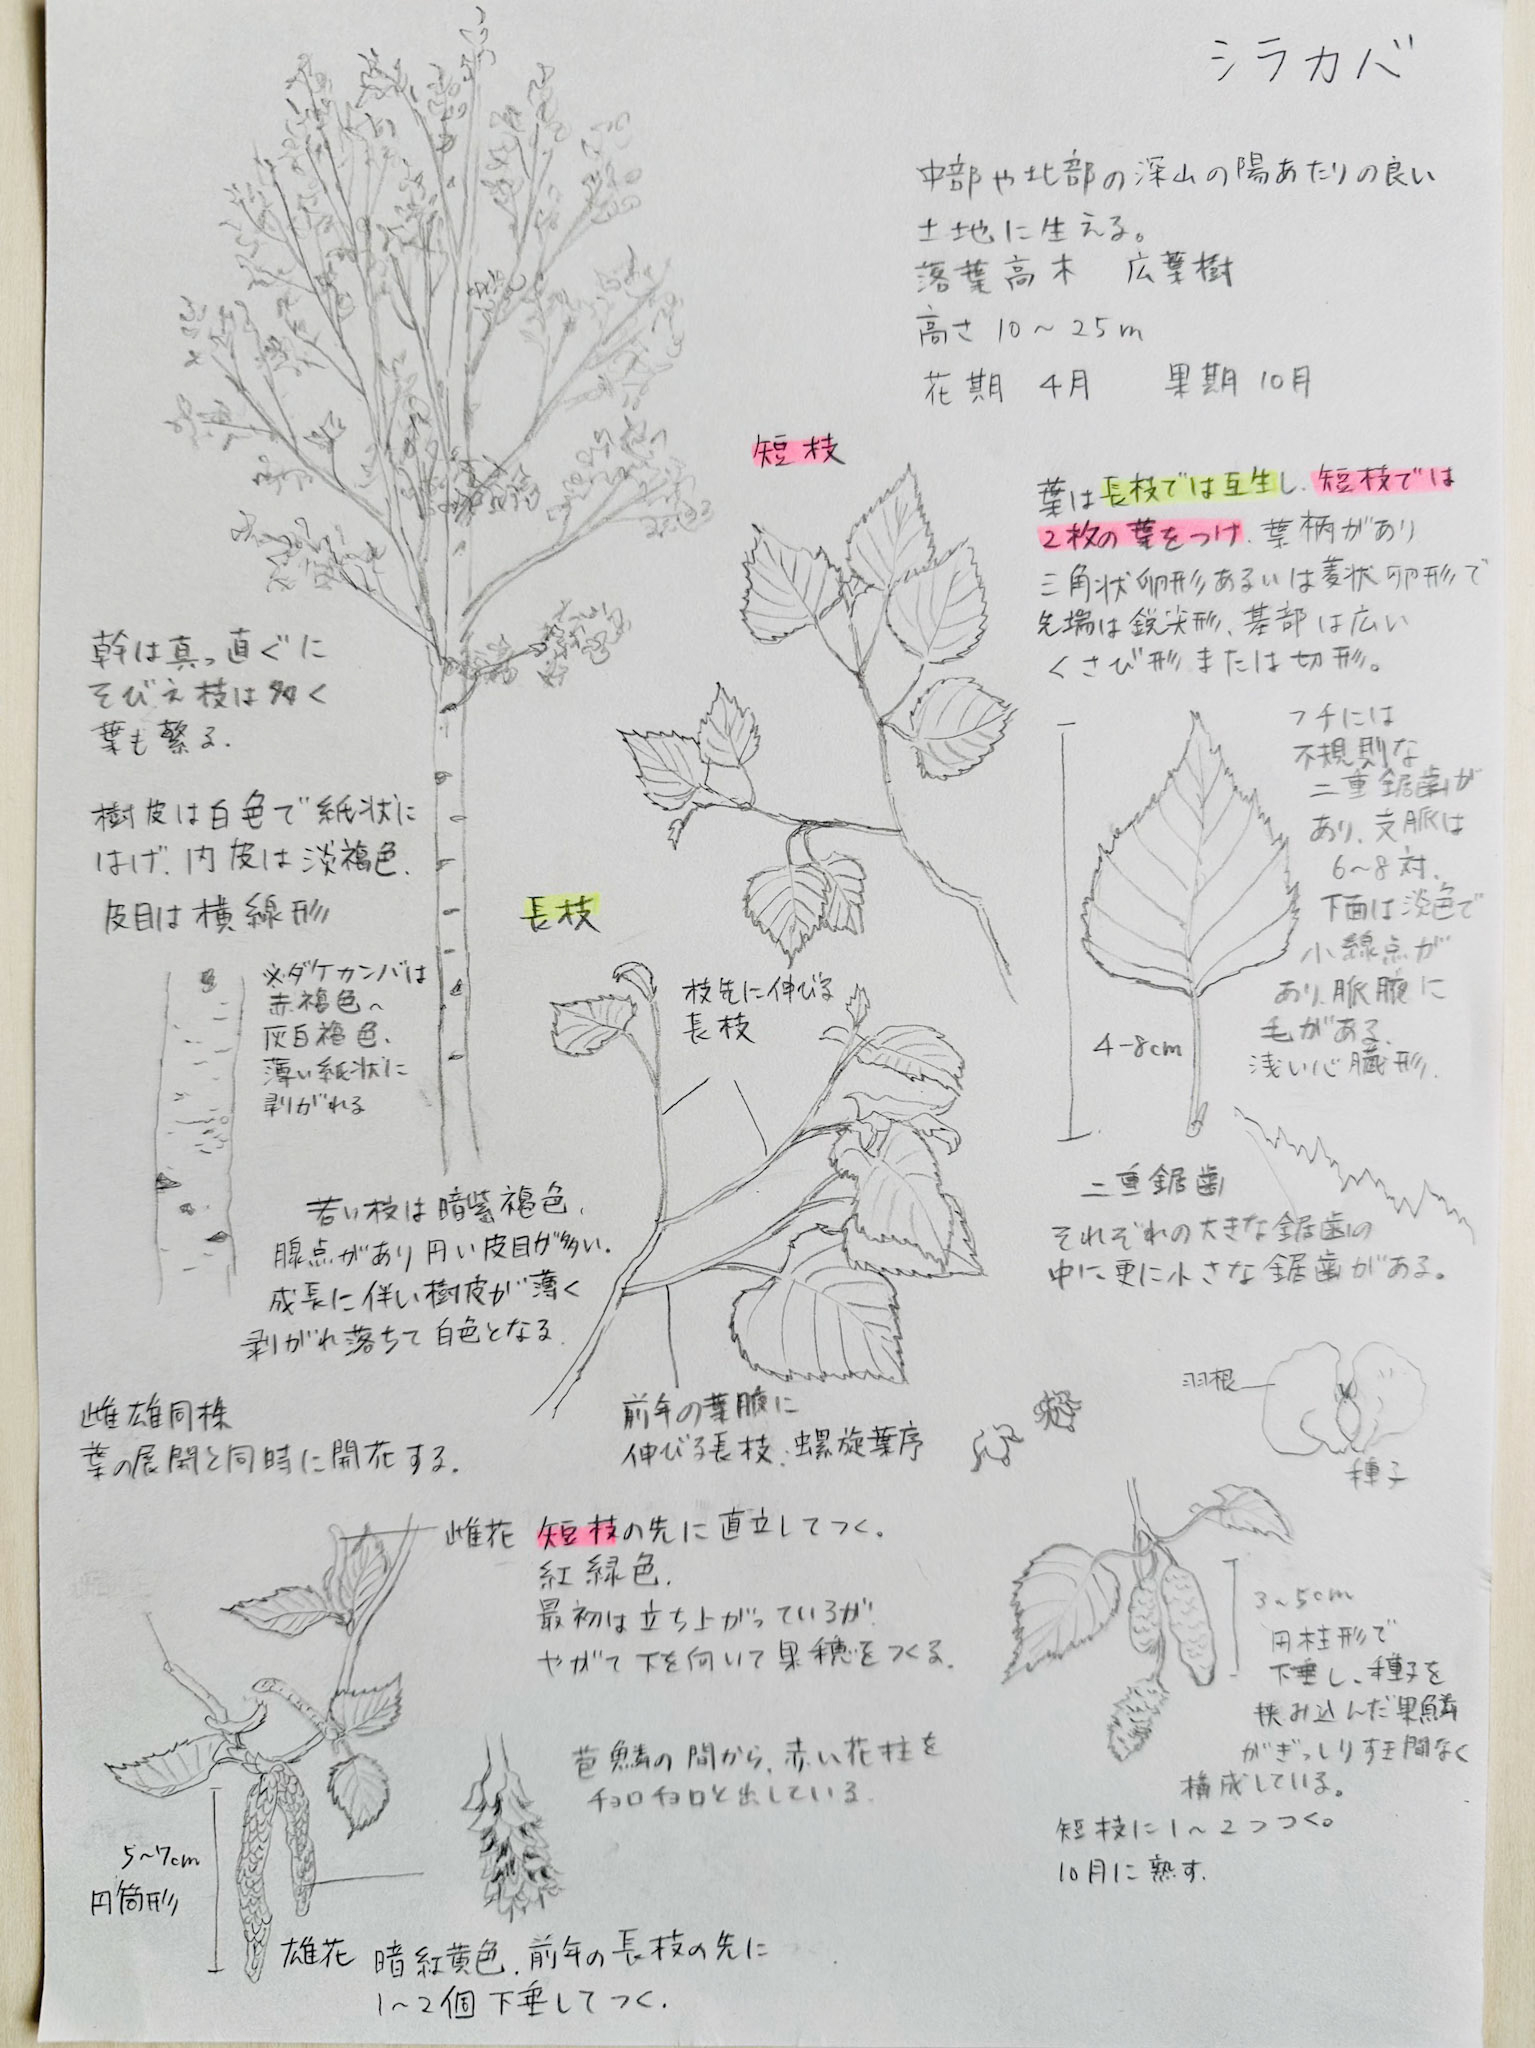 シラカバ
中部や北部の深山の陽あたりの良い
土地に生える。
落葉高木 広葉樹
高さ 10〜25m
花期 4月 果期 10月
短枝
葉は長枝では互生し、短枝では
2枚の葉をつけ、葉柄があり
三角状卵形あるいは菱状卵形で
先端は鋭尖形、基部は広い
くさび形または切形。
幹は真っ直ぐに
そびえ枝は多く
葉も繁る.
樹皮は白色で紙状に
はげ、内皮は淡褐色.
皮目は横線形
※ダケカンバは
赤褐色〜
灰白褐色.
薄い紙状に
剥がれる
フチには
不規則な
二重鋸歯が
あり、支脈は
6〜8対.
下面は淡色で
小線点が
あり、脈腋に
毛がある.
浅い心臓形.
4-8cm
長枝
枝先に伸びる
長枝
若い枝は暗紫褐色.
腺点があり円い皮目が多い.
成長に伴い樹皮が薄く
剥がれ落ちて白色となる.
二重鋸歯
それぞれの大きな鋸歯の
中に更に小さな鋸歯がある。
前年の葉腋に
伸びる長枝.螺旋葉序
羽根
種子
雌雄同株
葉の展開と同時に開花する.
雌花 短枝の先に直立してつく.
紅緑色.
最初は立ち上がっているが
やがて下を向いて果穂をつくる.
苞鱗の間から、赤い花柱を
チョロチョロと出している.
3〜5cm
円柱形で
下垂し、種子を
挟み込んだ果鱗
がぎっしりすき間なく
構成している。
短枝に1〜2つつく。
10月に熟す.
5〜7cm
円筒形
雄花 暗紅黄色.前年の長枝の先に
1〜2個下垂してつく.